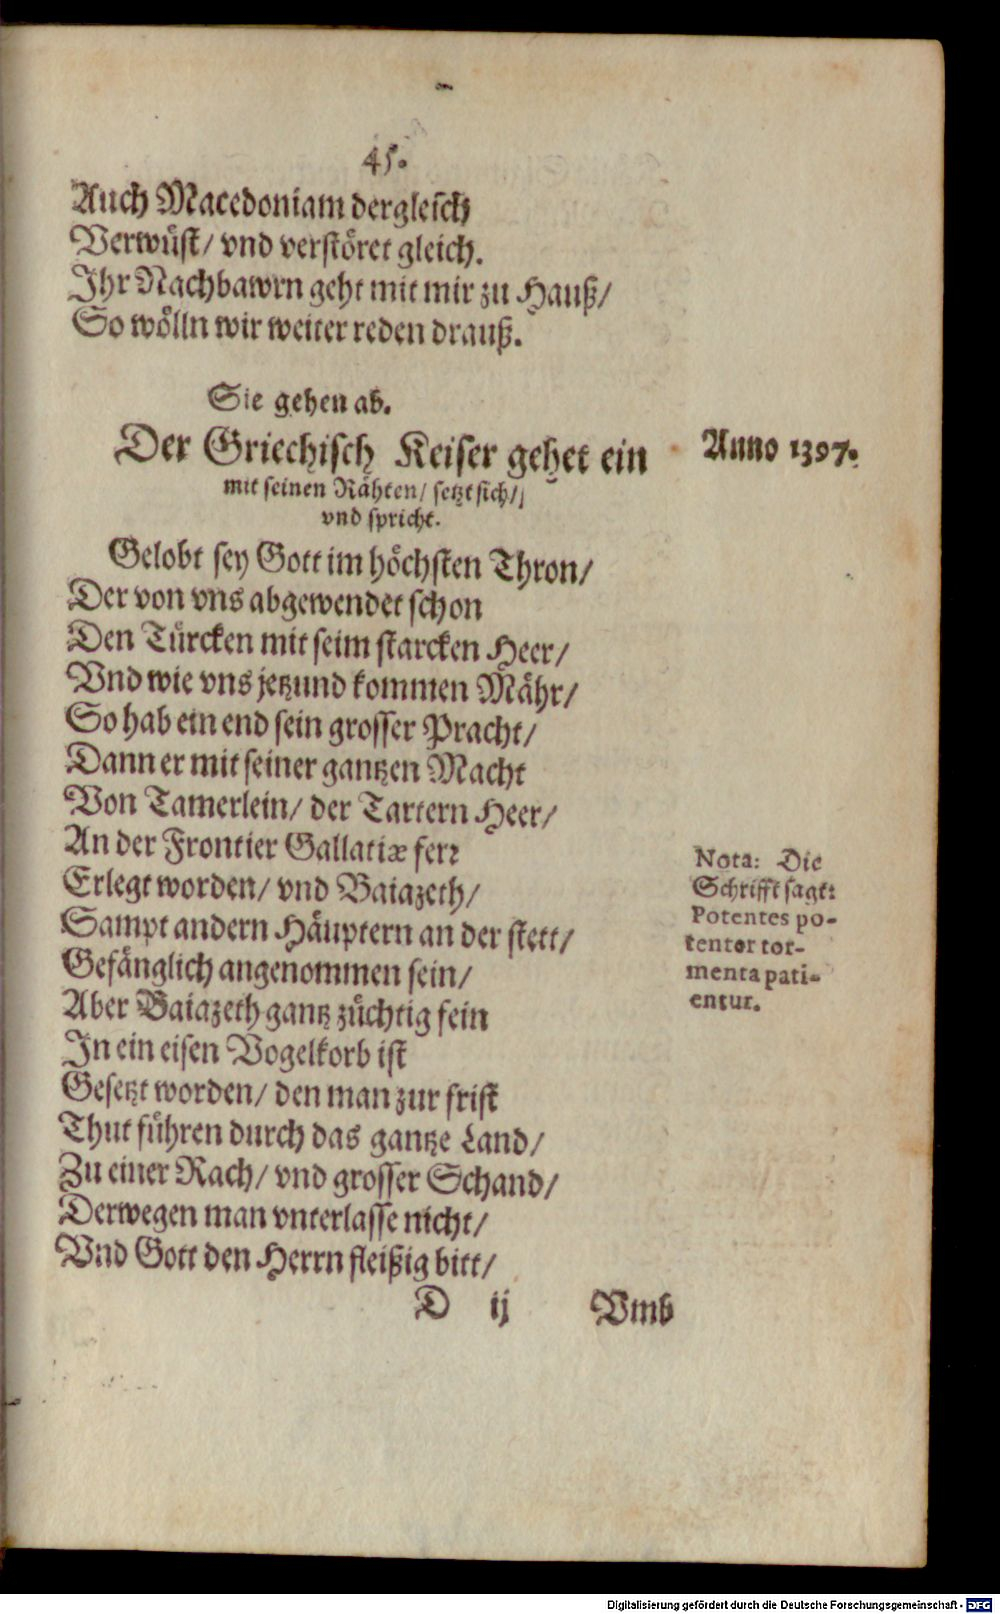 45.
Auch Macedoniam dergleich
Verwüst/ vnd verstöret gleich.
Ihr Nachbawrn geht mit mir zu Hauß/
So wölln wir weiter reden drauß.
Sie gehen ab.
Der Griechisch Keiser gehet ein
Anno 1397.
mit seinen Rähten/ setzt sich/
vnd spricht.
Gelobt sey Gott im höchsten Thron/
Der von vns abgewendet schon
Den Türcken mit seim starcken Heer/
Vnd wie vns jetzund kommen Mähr/
So hab ein end sein grosser Pracht/
Dann er mit seiner gantzen Macht
Von Tamerlein/ der Tartern Heer/
An der Frontier Gallatiæ ferr
Erlegt worden/ vnd Baiazeth/
Sampt andern Häuptern an der stett/
Gefänglich angenommen sein/
Aber Baiazeth gantz züchtig fein
In ein eisen Vogelkorb ist
Gesetzt worden/ den man zur frist
Thut führen durch das gantze Land/
Zu einer Rach/ vnd grosser Schand/
Derwegen man vnterlasse nicht/
Vnd Gott den Herrn fleißig bitt/
Nota: Die
Schrifft sagt:
Potentes po-
tenter tor-
menta pati-
entur.
D ij Vmb
Digitalisierung gefördert durch die Deutsche Forschungsgemeinschaft - DFG